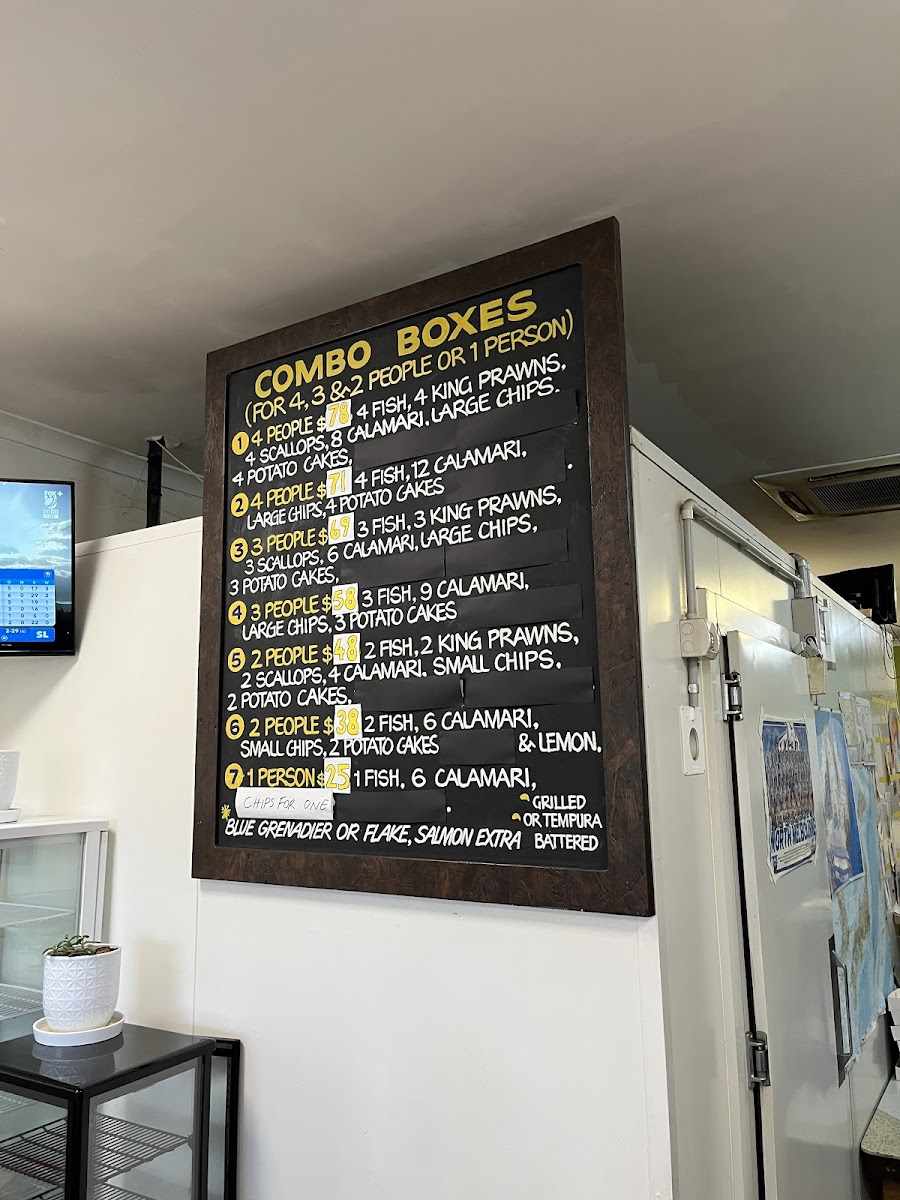 COMBO BOXES
(FOR 4, 3 & 2 PEOPLE OR 1 PERSON)
1 4 PEOPLE $78 4 FISH, 4 KING PRAWNS,
4 SCALLOPS, 8 CALAMARI, LARGE CHIPS.
4 POTATO CAKES,
2 4 PEOPLE $71 4 FISH, 12 CALAMARI,
LARGE CHIPS, 4 POTATO CAKES .
3 3 PEOPLE $69 3 FISH, 3 KING PRAWNS,
3 SCALLOPS, 6 CALAMARI, LARGE CHIPS,
3 POTATO CAKES,
4 3 PEOPLE $58 3 FISH, 9 CALAMARI,
LARGE CHIPS, 3 POTATO CAKES
5 2 PEOPLE $48 2 FISH, 2 KING PRAWNS,
2 SCALLOPS, 4 CALAMARI. SMALL CHIPS.
2 POTATO CAKES,
6 2 PEOPLE $38 2 FISH, 6 CALAMARI,
SMALL CHIPS, 2 POTATO CAKES & LEMON.
7 1 PERSON $25 1 FISH, 6 CALAMARI,
CHIPS FOR ONE .
BLUE GRENADIER OR FLAKE, SALMON EXTRA
GRILLED
OR TEMPURA
BATTERED
FOX
SL
NORTH MELBOURNE